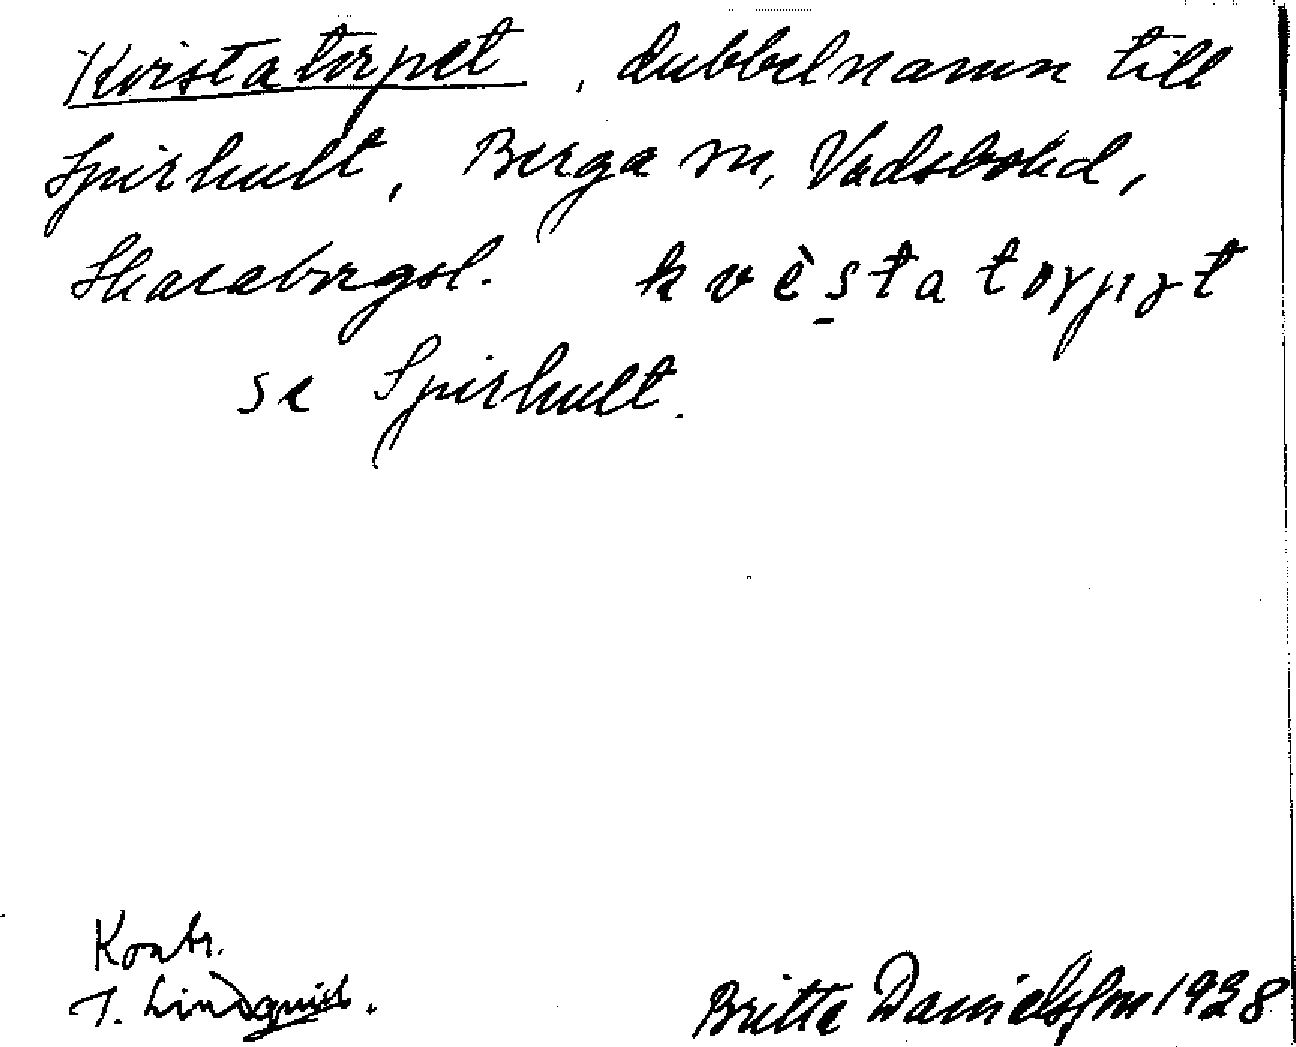 Kvistatorpet, dubbelnamn till
Spirhult, Berga sn, Vadsbohd,
Skaraborgsl. kvèstatorpət
se Spirhult.
Kontr.
I. Lindquist.
Britta Danielsson 1928